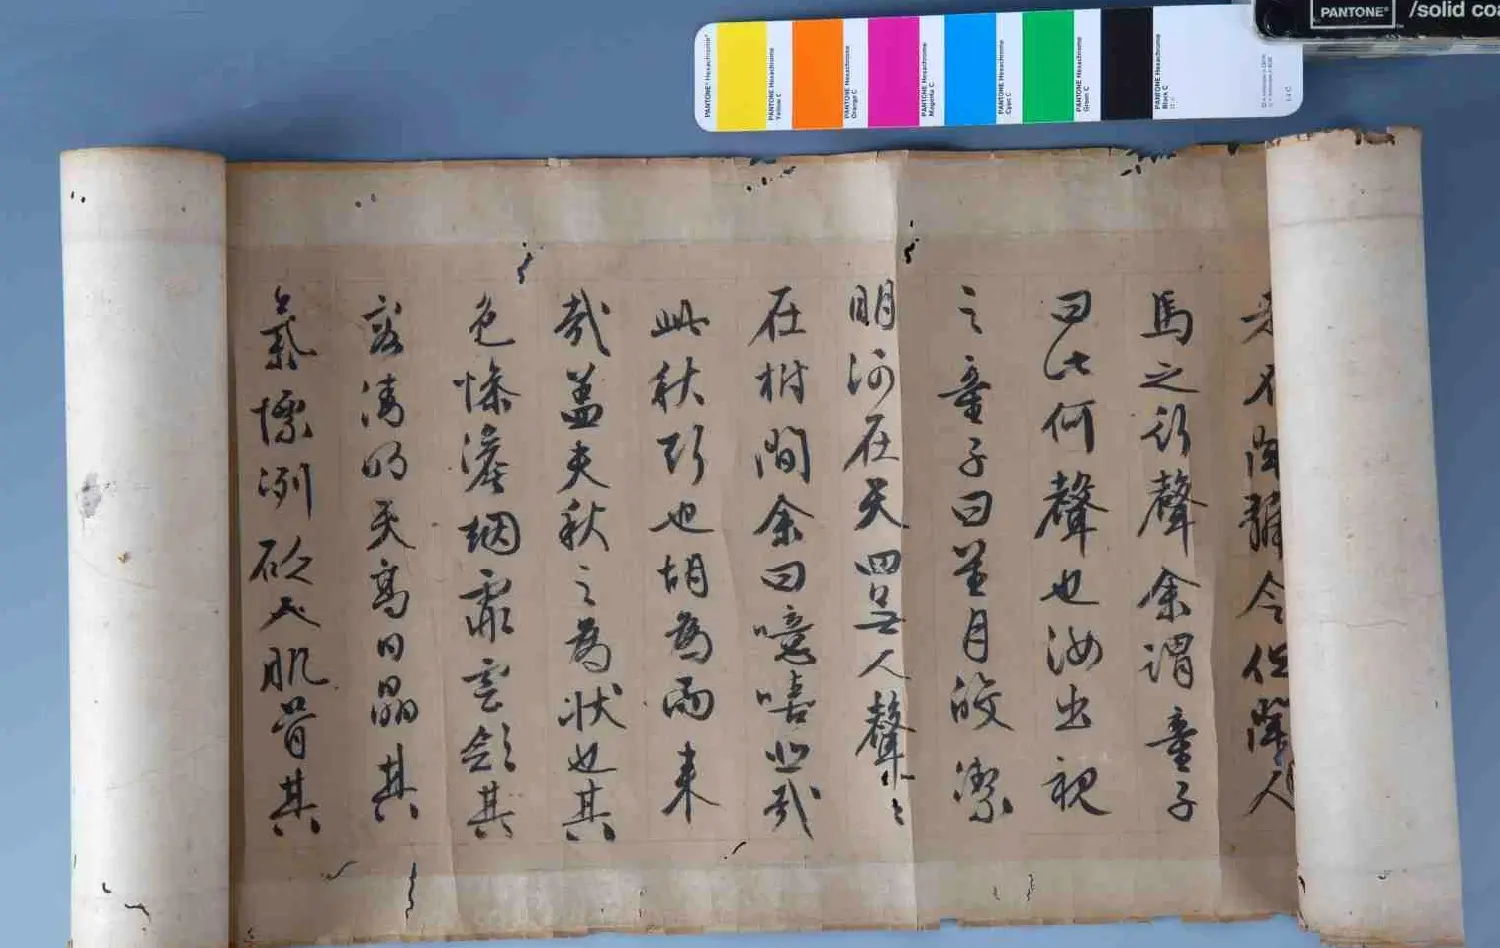 不聞號令但聞人
馬之行聲余謂童子
曰此何聲也汝出視
之童子曰星月皎潔
明河在天四无人聲〻
在樹間余曰噫嘻悲哉
此秋聲也胡為而來
哉蓋夫秋之為狀也其
色慘澹烟霏雲斂其
容清明天高日晶其
氣慄冽砭人肌骨其
PANTONE® /solid coa
PANTONE® Hexachrome®
PANTONE Hexachrome Yellow C
PANTONE Hexachrome Orange C
PANTONE Hexachrome Magenta C
PANTONE Hexachrome Cyan C
PANTONE Hexachrome Green C
PANTONE Hexachrome Black C